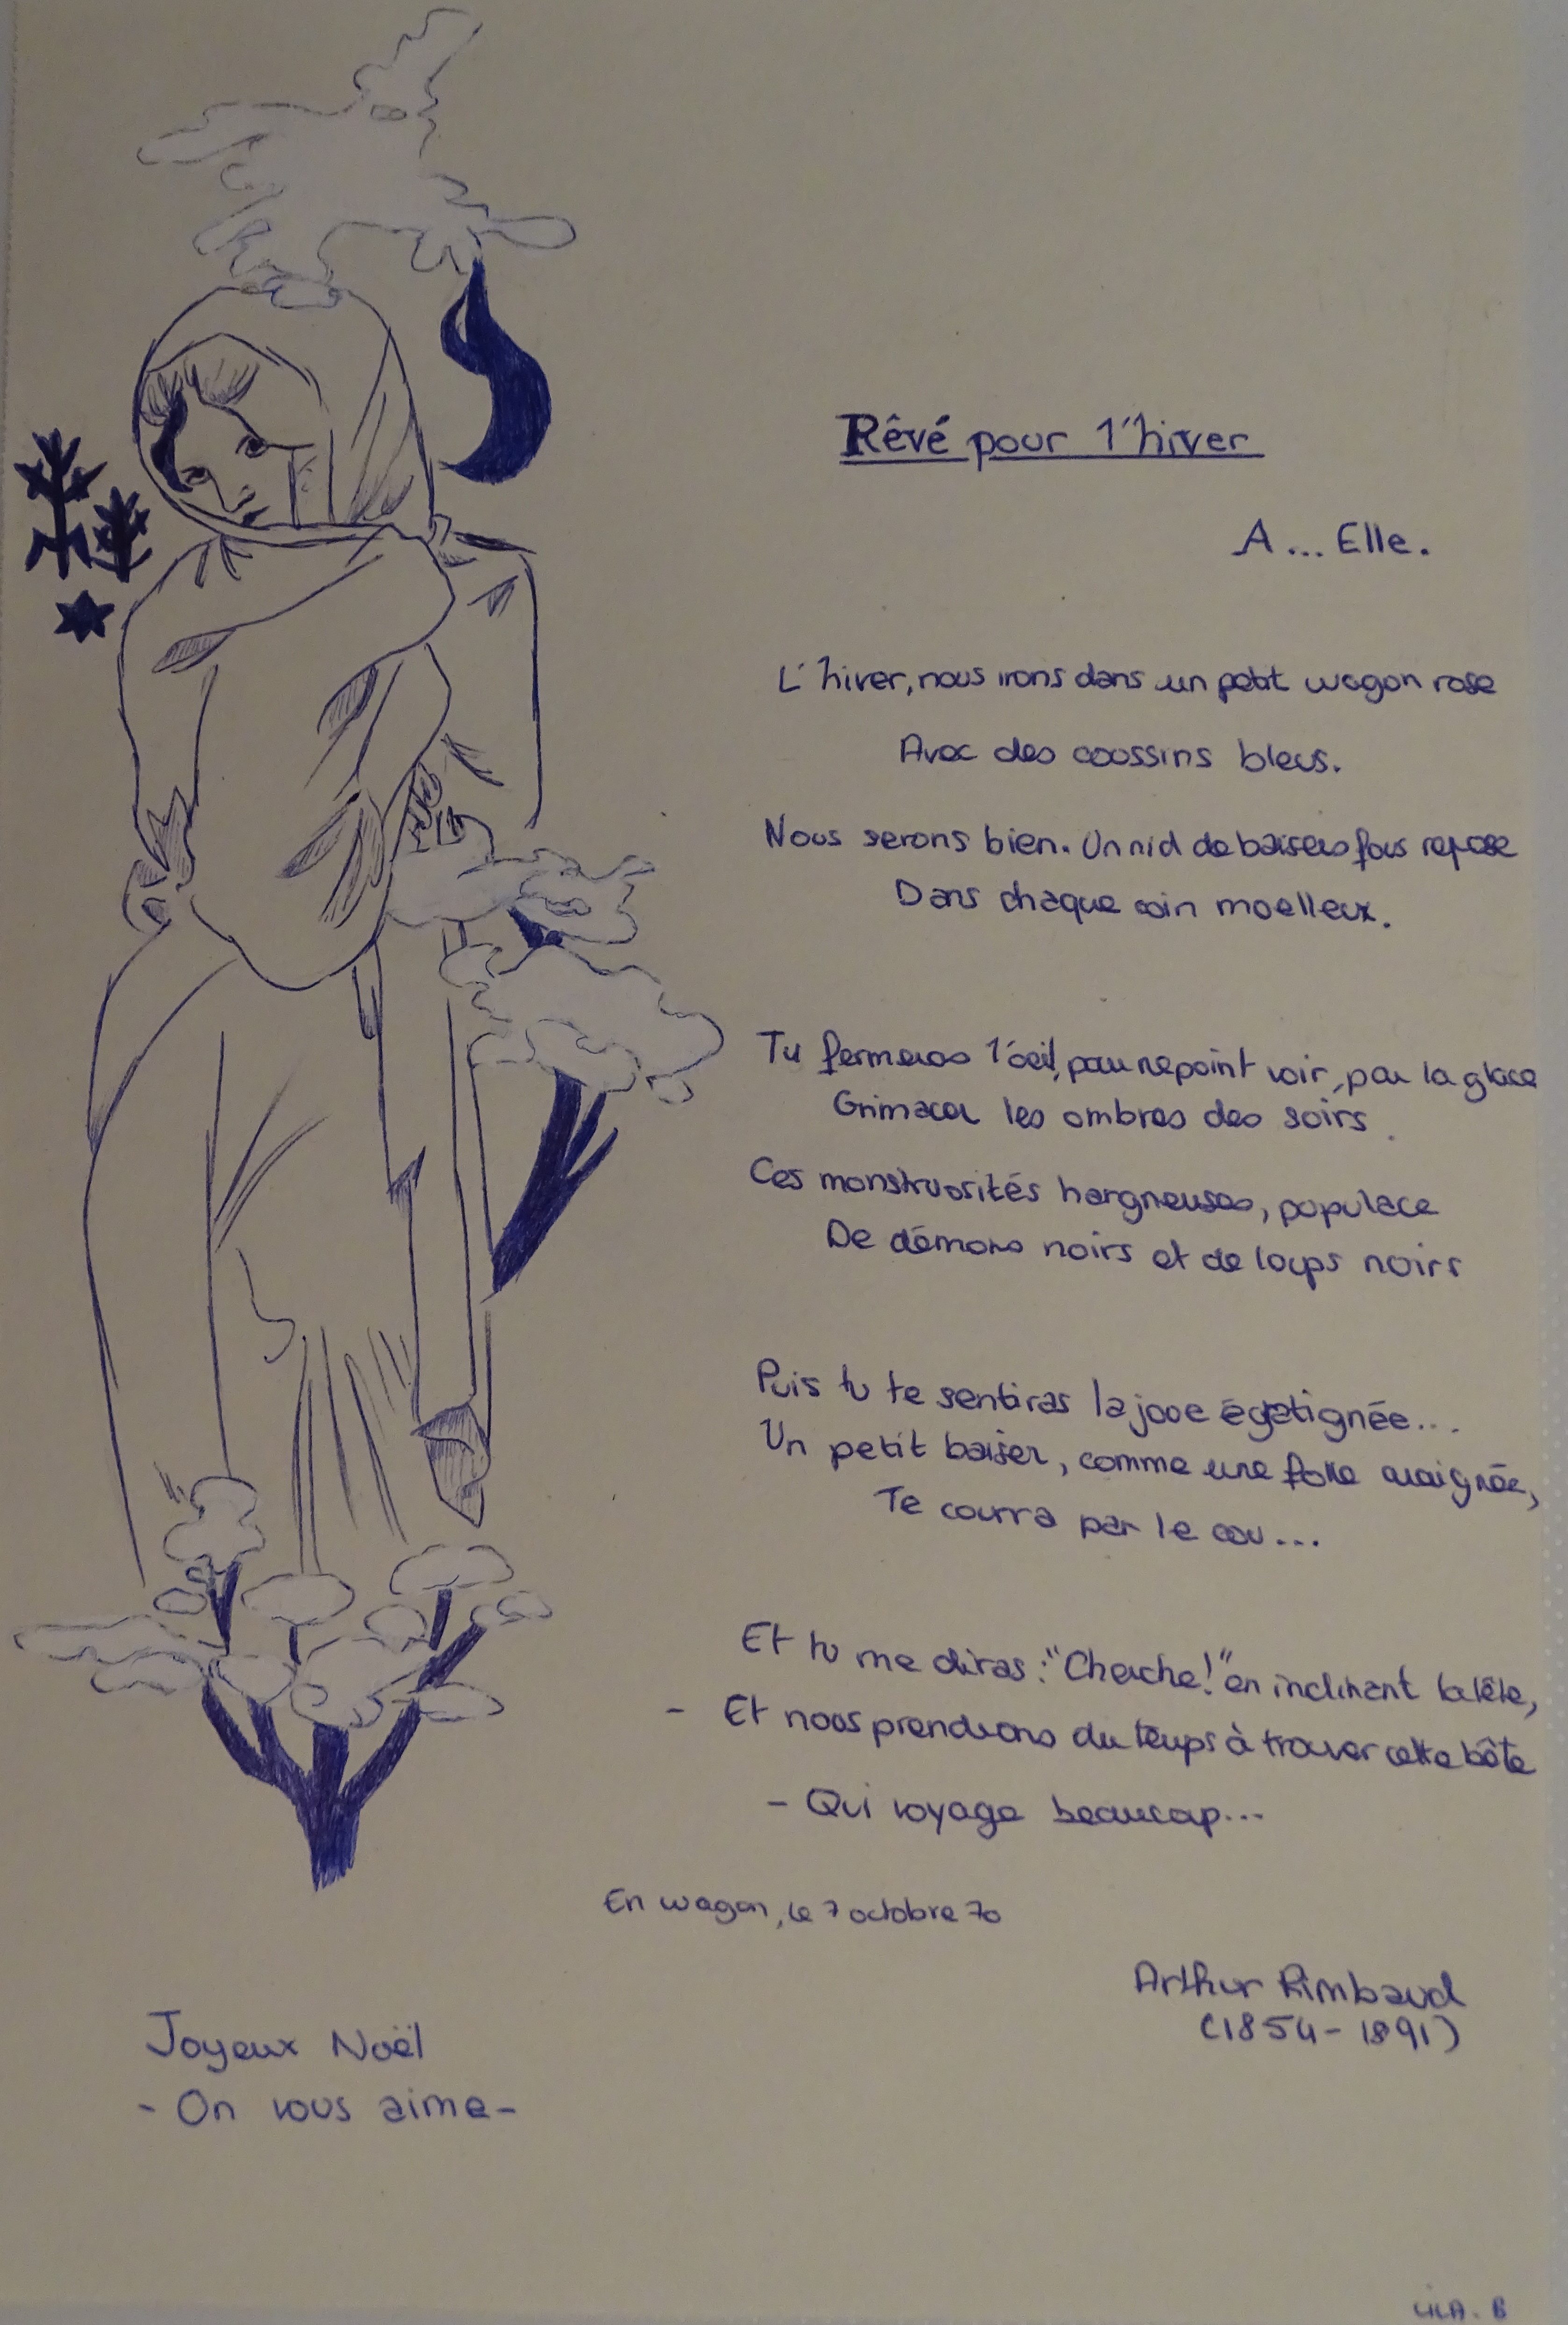 Rêvé pour l'hiver
A... Elle.
L'hiver, nous irons dans un petit wagon rose
Avec des coussins bleus.
Nous serons bien. Un nid de baisers fous repose
Dans chaque coin moelleux.
Tu fermeras l'œil, pour ne point voir, par la glace
Grimacer les ombres des soirs.
Ces monstruosités hargneuses, populace
De démons noirs et de loups noirs
Puis tu te sentiras la joue égratignée...
Un petit baiser, comme une folle araignée,
Te courra par le cou...
Et tu me diras : "Cherche!" en inclinant la tête,
- Et nous prendrons du temps à trouver cette bête
- Qui voyage beaucoup...
En wagon, le 7 octobre 70
Arthur Rimbaud
(1854-1891)
Joyeux Noël
- On vous aime -
LILA. B